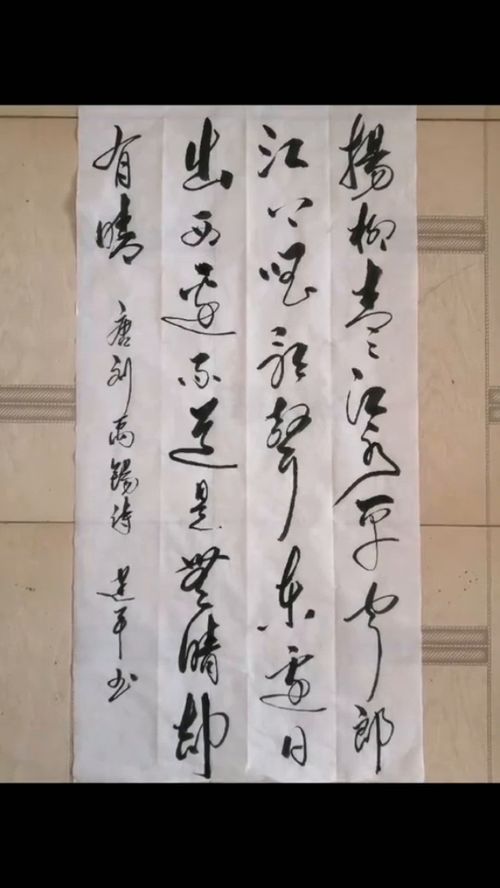 揚柳青々江水平闻郎
江上唱歌聲東邊日
出西邊雨道是無晴却
有晴 唐刘禹錫诗 建平书